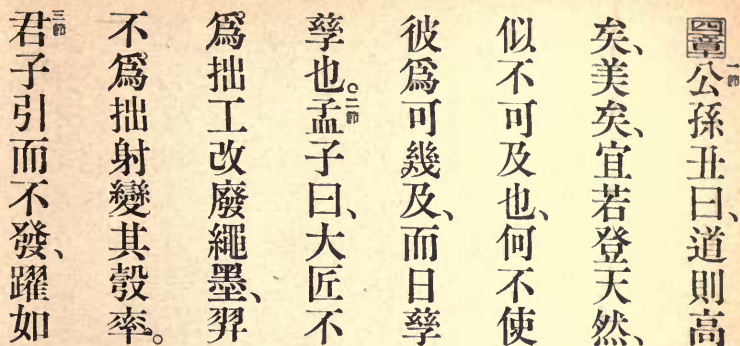 四章一節公孫丑曰、道則高
矣、美矣、宜若登天然、
似不可及也、何不使
彼爲可幾及、而日孳
孳也。二節孟子曰、大匠不
爲拙工改廢繩墨、羿
不爲拙射變其彀率。
三節君子引而不發、躍如